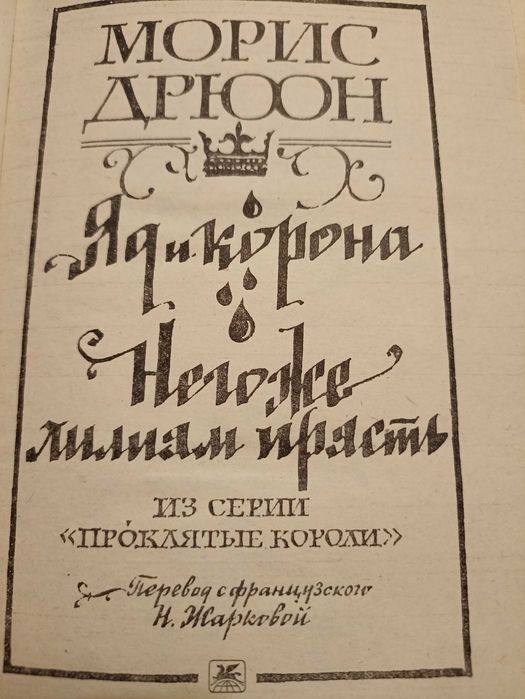 МОРИС
ДРЮОН
Яд и корона
Негоже
лилиям прясть
ИЗ СЕРИИ
«ПРОКЛЯТЫЕ КОРОЛИ»
Перевод с французского
Н. Жарковой